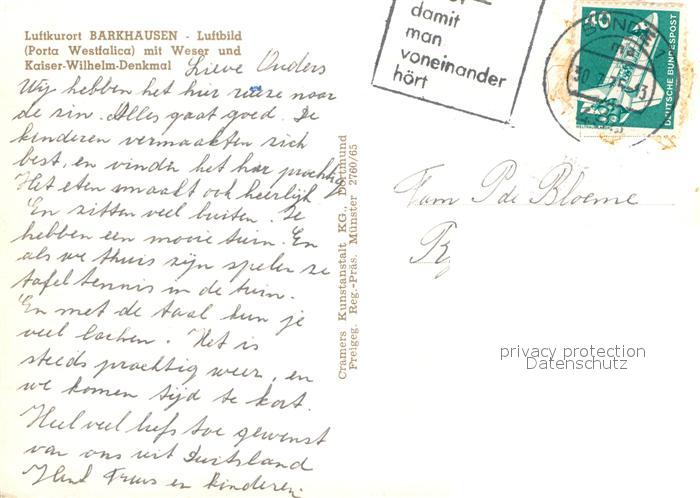 Luftkurort BARKHAUSEN - Luftbild
(Porta Westfalica) mit Weser und
Kaiser-Wilhelm-Denkmal
Lieve Ouders
Wij hebben het hier reuze naar
de zin. Alles gaat goed. De
kinderen vermaakten zich
best, en vinden het hier prachtig
Het eten smaakt ook heerlijk
En zitten veel buiten. Ze
hebben een mooie tuin. En
als we thuis zijn spelen ze
tafeltennis in de tuin.
En met de taal kun je
veel lachen. Het is
steeds prachtig weer, en
we komen tijd te kort.
Heel veel liefs toe gewenst
van ons uit Duitsland
en kinderen.
Cramers Kunstanstalt KG., Dortmund
Freigeg. Reg.-Präs. Münster 2760/65
damit
man
voneinander
hört
40
DEUTSCHE BUNDESPOST
Fam P de Bloeme
privacy protection
Datenschutz